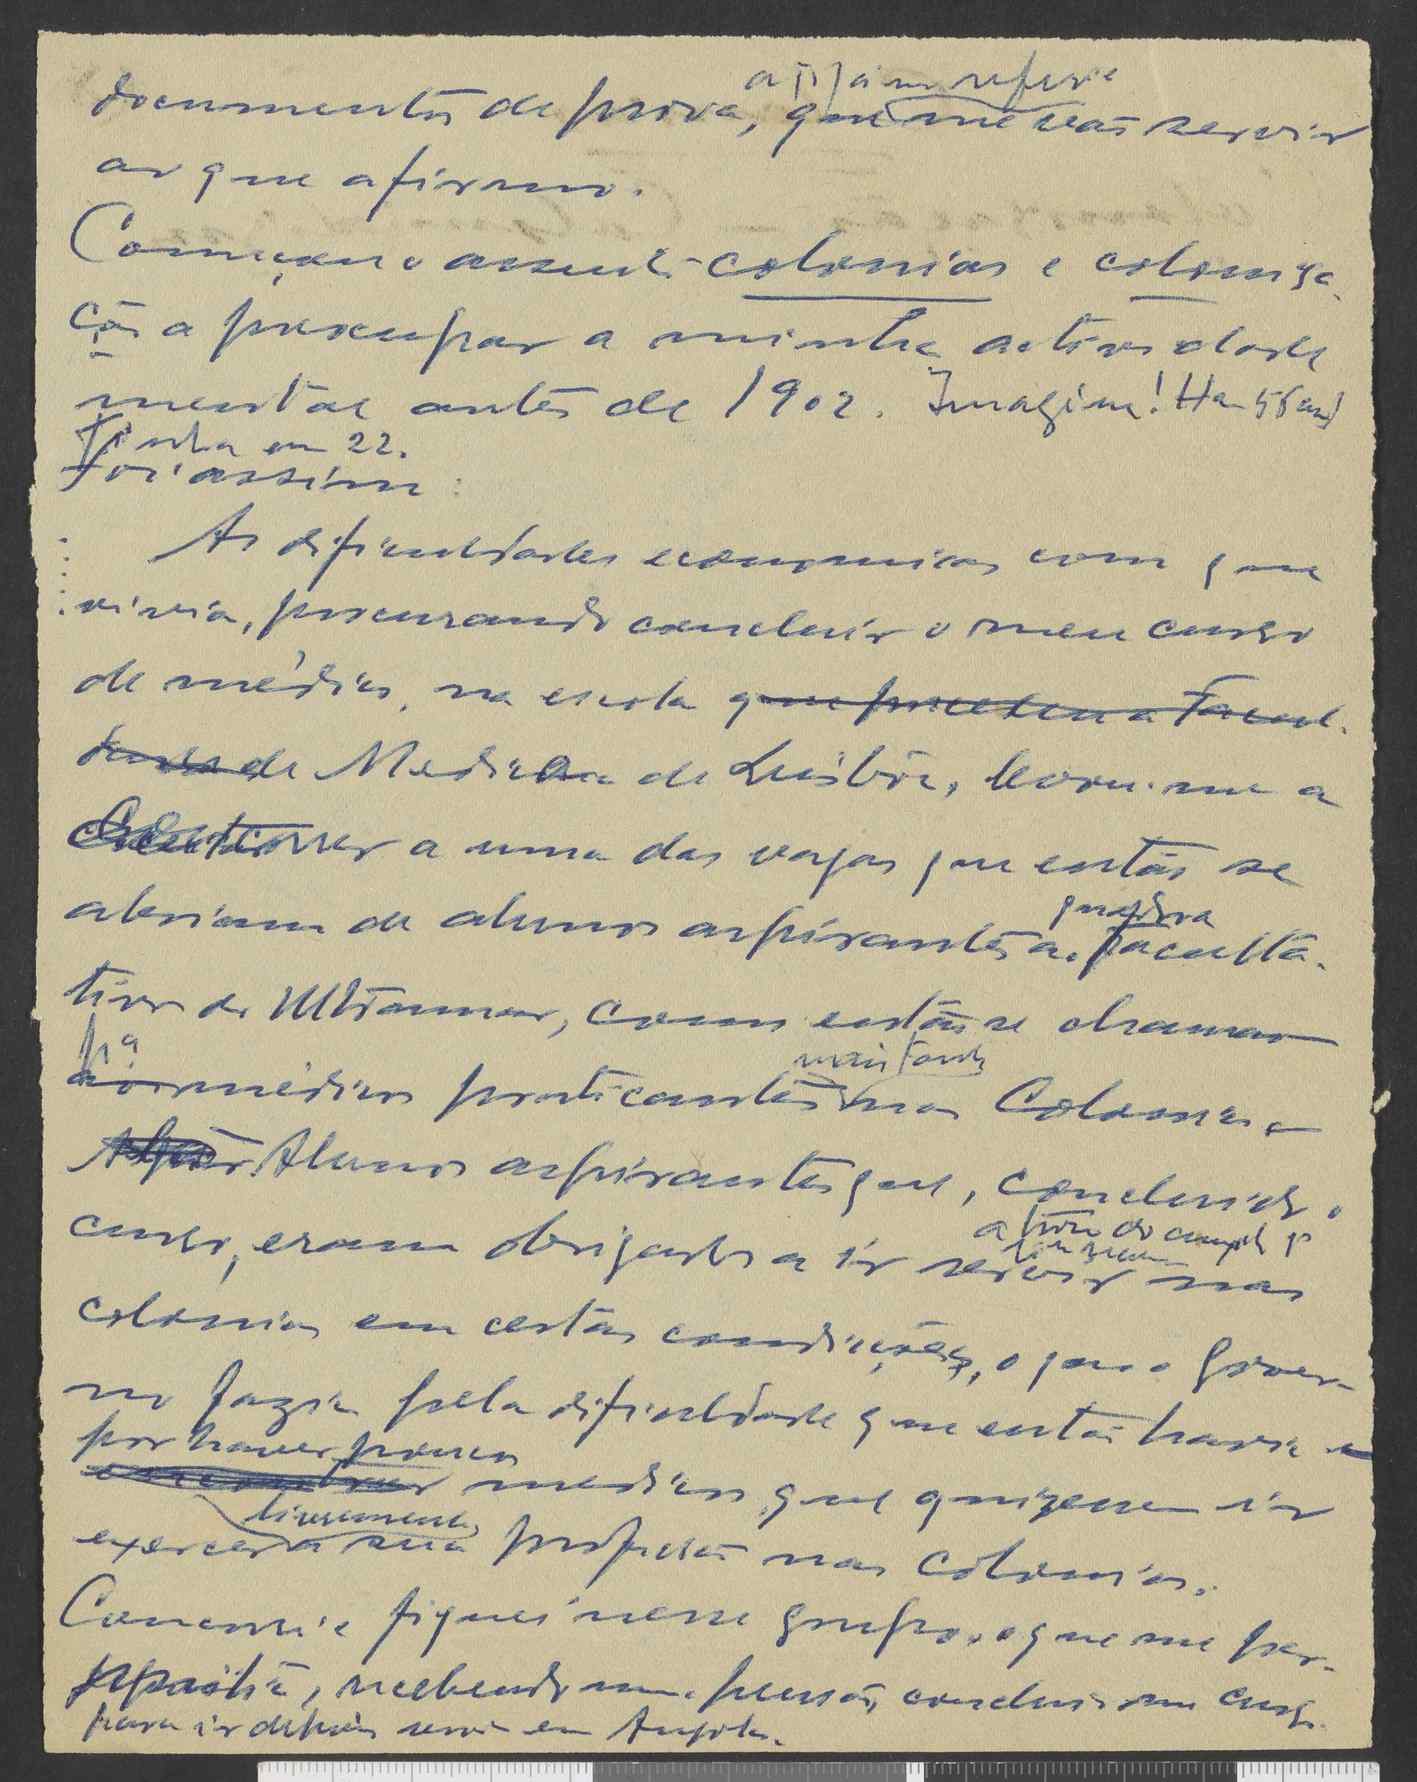 a q já me referi
documentos de prova, que me vão servir
ao que afirmo.
Começou o assunto colonias e coloniza-
ção a preocupar a minha actividade
mental antes de 1902. Imagine! Ha 56 anos
Tinha eu 22.
Foi assim:
As dificuldades economicas com que
vivia, procurando concluir o meu curso
de médico, na escola que precedeu a Facul-
dade de Medicina de Lisbôa, levou-me a
concorrer a uma das vagas que então se
abriam de alunos aspirantes a faculta-
quadro
tivos do Ultramar, como então se chamavam
pª
aos médicos praticantes nas Colonias
mais tarde
Alunos aspirantes que, concluido o
curso, eram obrigados a ir servir nas
colonias em certas condições, o que o Gover-
no fazia pela dificuldade que então havia
por haver poucos
medicos que quizessem ir
livremente
exercer a sua profissão nas colonias.
Concorri e fiquei nesse grupo, o que me per-
mitia, recebendo uma pensão, concluir o meu curso
para ir depois servir em Angola.